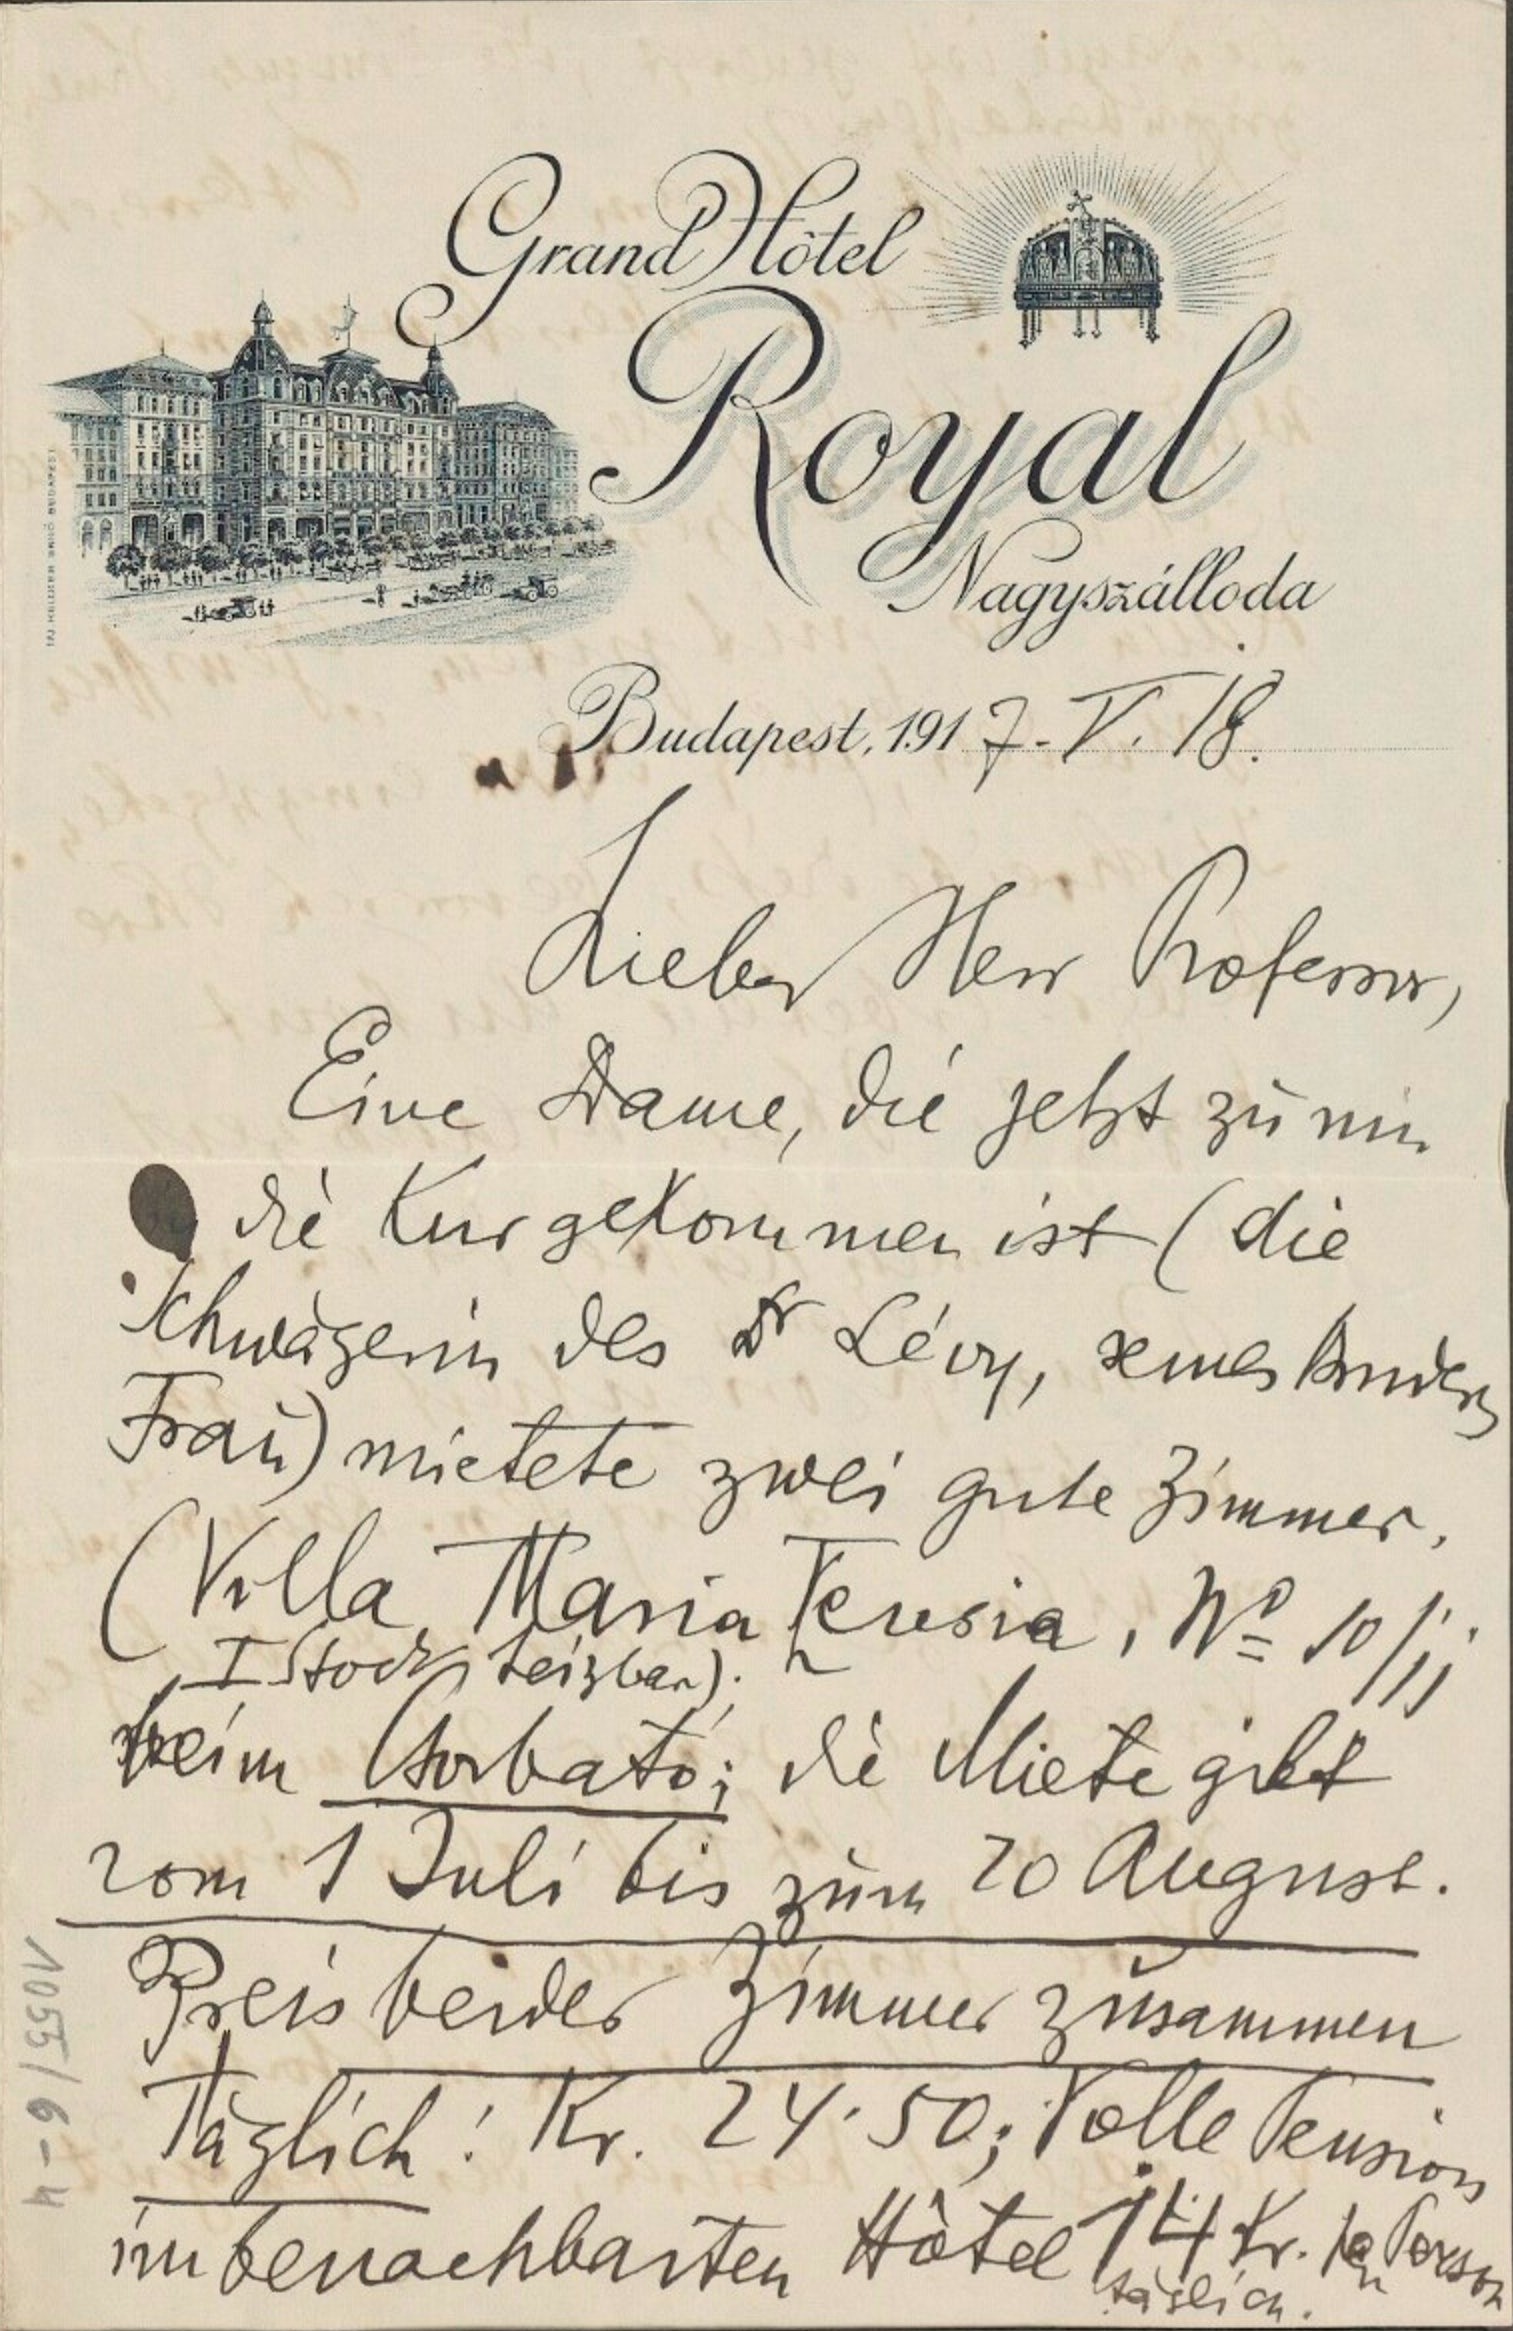 Grand Hôtel
Royal
Nagyszálloda
Budapest, 1917. V. 18.
Lieber Herr Professor,
Eine Dame, die jetzt zu mir
in die Kur gekommen ist (die
Schwägerin des Dr Lévy, seines Bruders
Frau) mietete zwei gute Zimmer.
(Villa Maria Teresia, No 10/11
I Stock, heizbar).
beim Csorbató; die Miete gilt
vom 1 Juli bis zum 20 August.
Preis beider Zimmer zusammen
Täglich: Kr. 24·50; Volle Pension
im benachbarten Hôtel 14 Kr. pro Person
täglich.
1055/6-4